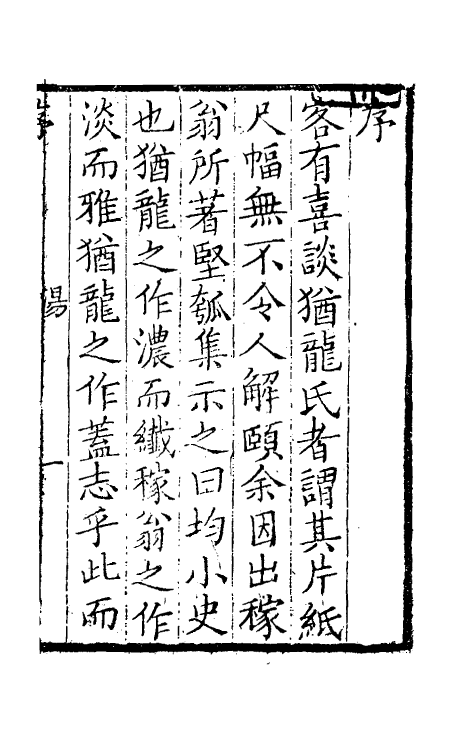 序
客有喜談猶龍氏者謂其片紙
尺幅無不令人解頤余因出稼
翁所著堅瓠集示之曰均小史
也猶龍之作濃而纖稼翁之作
淡而雅猶龍之作蓋志乎此而
序
一